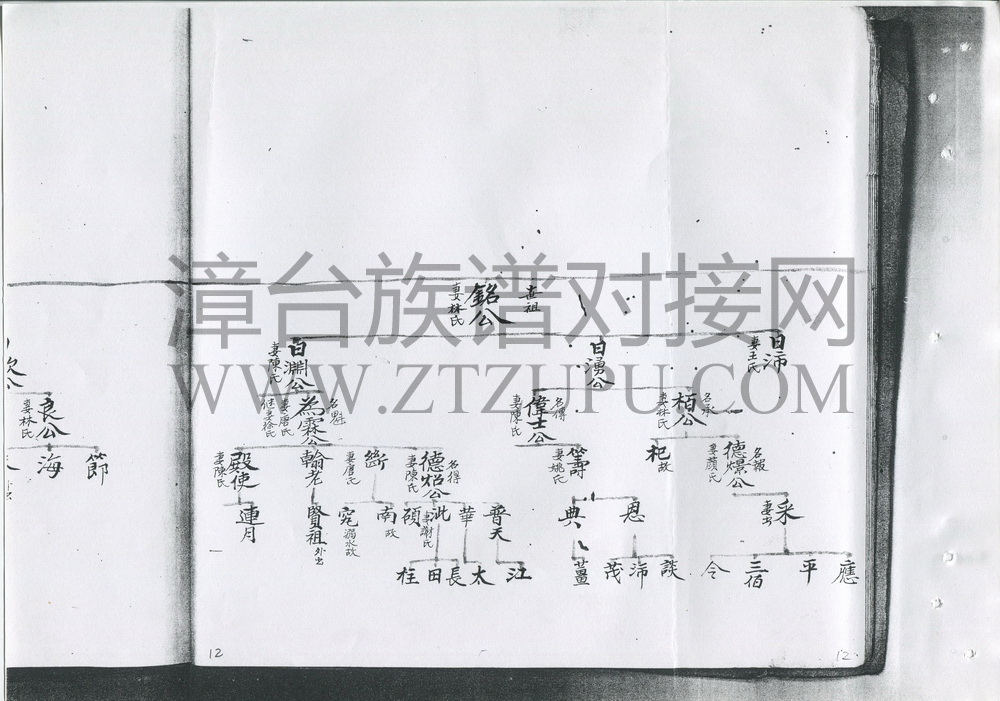 直祖
銘公
妻林氏
日沛
妻王氏
日湧公
日淵公
妻陳氏
名承
栢公
妻林氏
名傳
偉士公
妻陳氏
名魁
為霖公
妻唐氏
名報
妻顏氏
杞故
妻姚氏
名得
德炤公
妻陳氏
妻唐氏
翰老
殿使
妻陳氏
采
恩
典
普天
華
沘
妻謝氏
碩
南故
溺水故
賢祖外出
連月
應
平
三佰
令
談
沛
茂
薑
江
太
長
田
柱
良公
妻林氏
節
海
12
12
漳台族谱对接网
WWW.ZTZUPU.COM